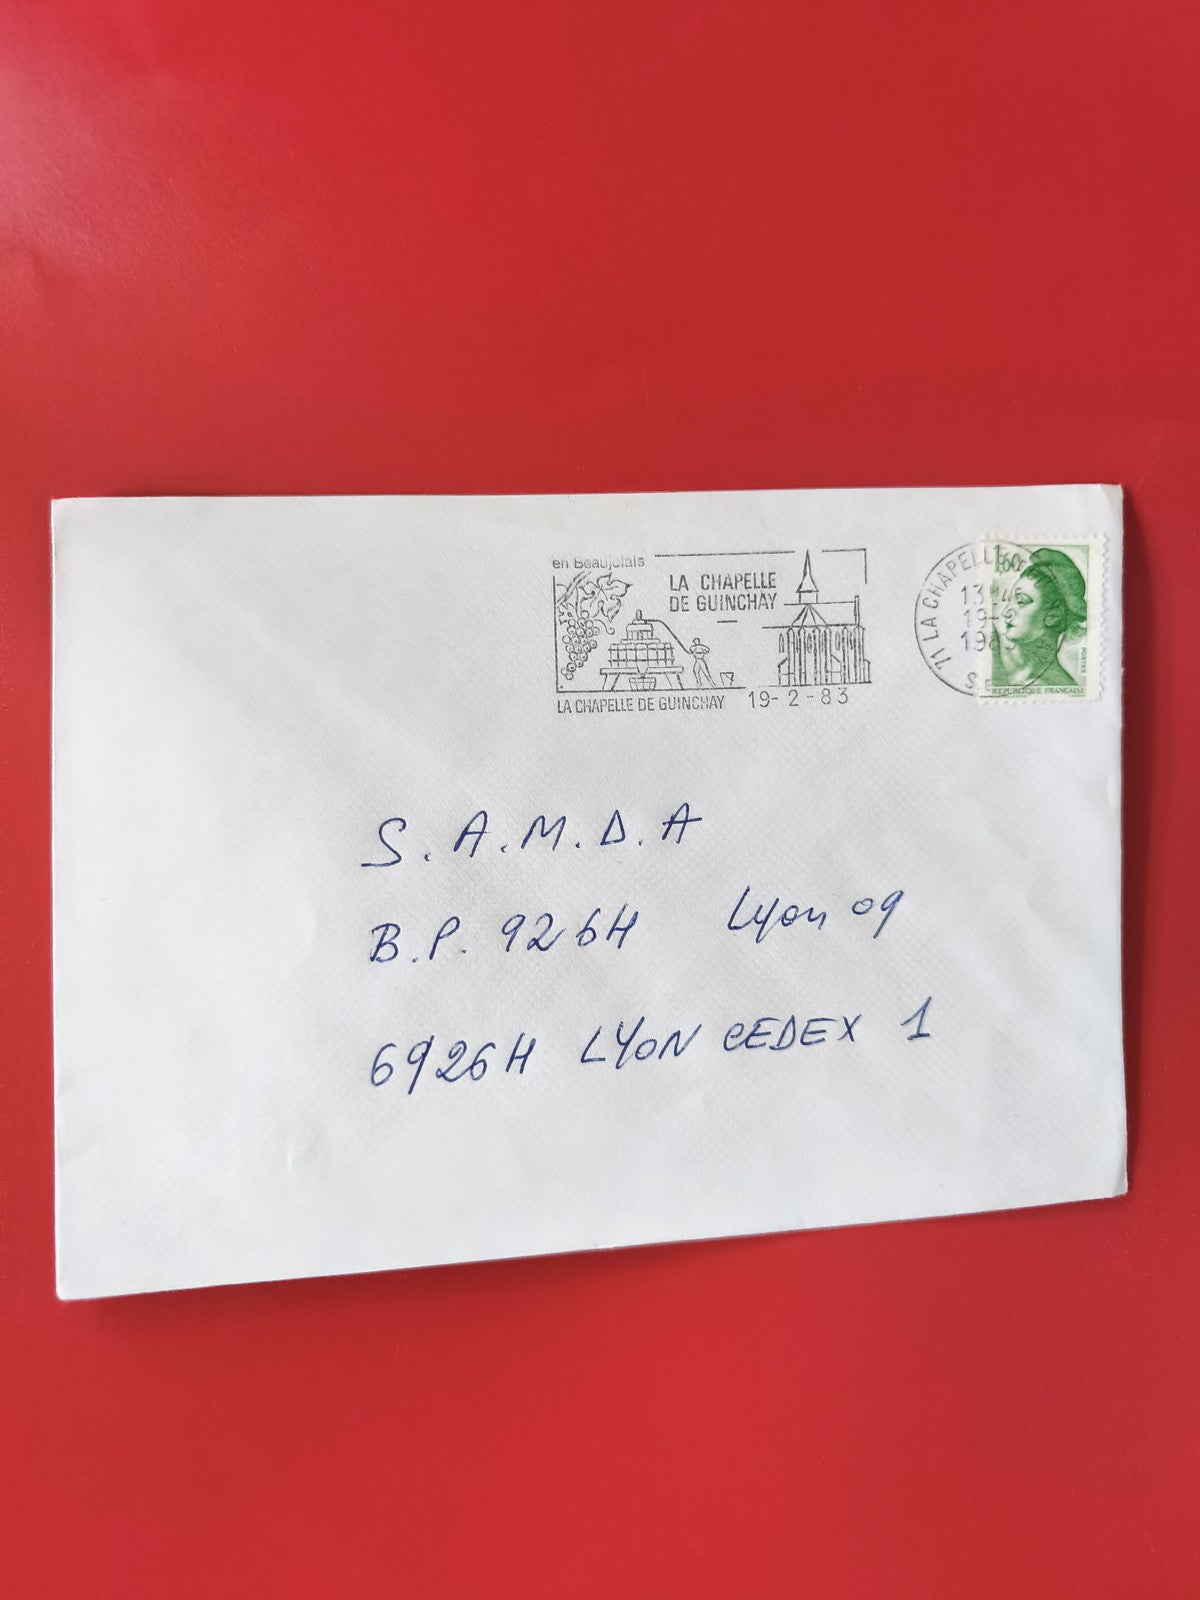 en Beaujolais
LA CHAPELLE
DE GUINCHAY
LA CHAPELLE DE GUINCHAY 19-2-83
71 LA CHAPELLE
13H45
19-2
1983
S.& L.
1,60
POSTES
REPUBLIQUE FRANCAISE
S.A.M.D.A
B.P. 9264 Lyon 09
69264 LYON CEDEX 1